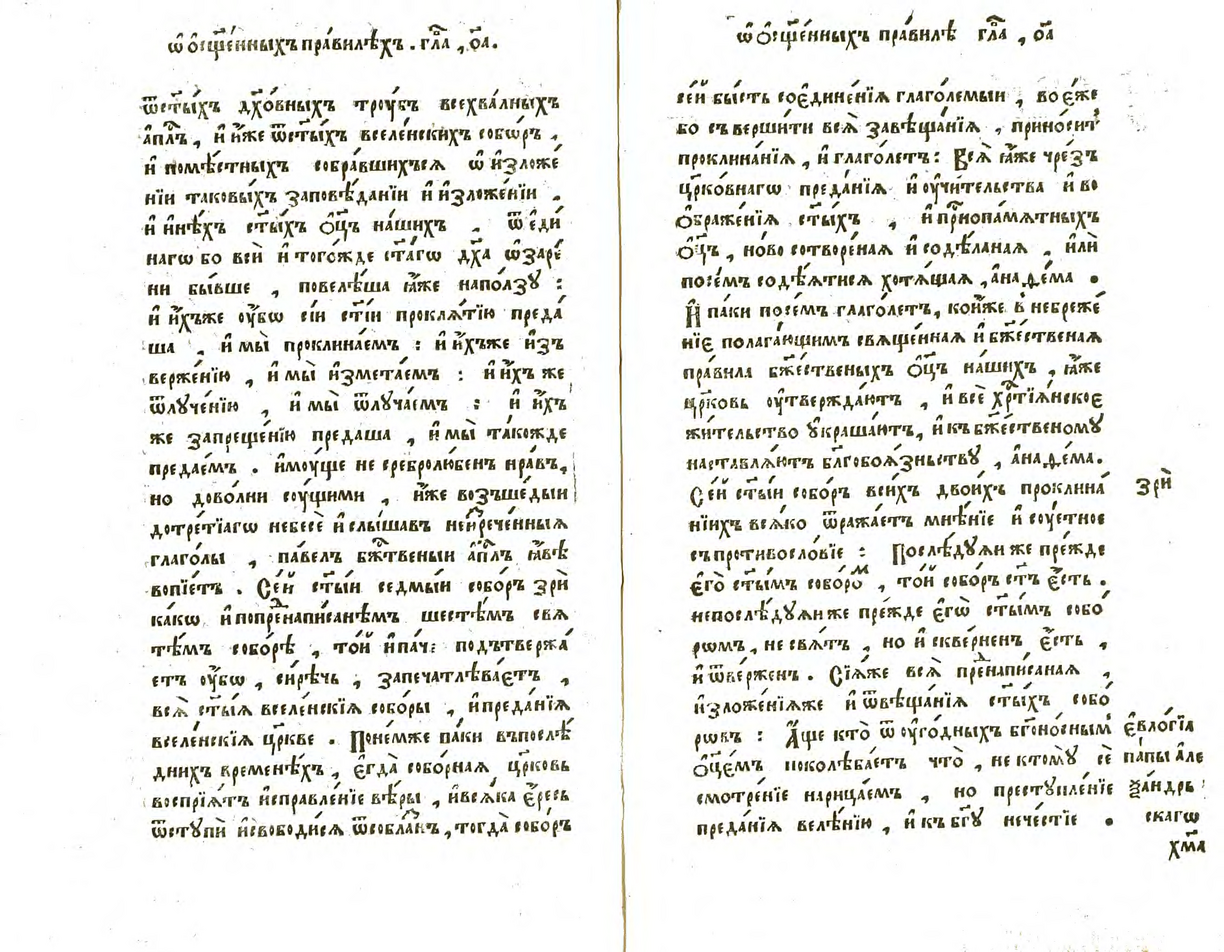 ѡ҆ ѻ҆сщ҃е́нныхъ пра́вилѣхъ . гла̑ , о҃а.
ѿст҃ы́хъ дх҃о́вныхъ трꙋ́бъ всехва́лныхъ
а҆пл҃ъ , и҆ и҆́же ѿст҃ы́хъ вселе́нскихъ собѡ́ръ ,
и҆ помѣ́стныхъ собра́вшихъсѧ ѡ҆ и҆зложе́
нїи таковы́хъ заповѣ́данїи и҆ и҆зложе́нїи .
и҆ и҆нѣ́хъ ст҃ы́хъ ѻ҆ц҃ъ на́шихъ . ѿ є҆ди́
нагѡ бо всѝ и҆ того́жде ст҃а́гѡ дх҃а ѡ҆заре́
ни бы́вше , повелѣ́ша ꙗ҆́же напо́лзꙋ :
и҆ и҆́хъже ᲂу҆́бѡ сі́и ст҃і́и проклѧ́тїю преда́
ша . и҆ мы̀ проклина́емъ : и҆ и҆́хъже и҆́зъ
верже́нїю , и҆ мы̀ и҆змета́емъ : и҆ и҆́хъ же
ѿлꙋче́нїю , и҆ мы̀ ѿлꙋча́емъ : и҆ и҆́хъ
же запреще́нїю преда́ша , и҆ мы̀ та́кожде
предае́мъ . и҆мᲂу́ще не сребролю́бенъ нра́въ,
но дово́лни сᲂу́щими , и҆́же возъше́дыи
дотре́тїагѡ небесѐ и҆ слы́шавъ неи҆зрече́нныѧ
глаго́лы , па́велъ бж҃твеныи а҆пл҃ъ ꙗ҆́вѣ
вопїе́тъ . Се́й ст҃ы́и седмы́и собо́ръ зрѝ
ка́кѡ и҆ попреⷣнапи́санѣмъ шесте́мъ свѧ
тѣ́мъ собо́рѣ , то́й и҆па́че подътвержа́
етъ ᲂу҆́бѡ , си́рѣчь , запечатлѣва́єтъ ,
всѧ̀ ст҃ы́ѧ вселе́нскїѧ собо́ры , и҆преда́нїѧ
вселе́нскїѧ цр҃кве . Поне́мже па́ки въпослѣ́
днихъ временѣ́хъ , є҆гда̀ собо́рная цр҃ковь
воспрїѧ́тъ и҆справле́нїе вѣ́ры , и҆всѧ́ка є҆́ресь
ѿстꙋпѝ и҆свободи́сѧ ѿсо́бланъ, тогда̀ собо́ръ
ѡ҆ ѻ҆сщ҃е́нныхъ пра́вилѣ гла̑ , о҃а
се́й бы́сть соє҆дине́нїѧ глаго́лемыи , во є҆́же
бо съвершѝти всѧ̀ завѣща́нїѧ , прино́ситъ
проклина́нїѧ , и҆ глаго́летъ : Всѧ̀ ꙗ҆́же чре́зъ
цр҃ко́внагѡ преда́нїѧ и҆ ᲂу҆чи́тельства и҆ во
ѻ҆браже́нїѧ ст҃ы́хъ , и҆ прⷭ҇нопа́мѧтныхъ
ѻ҆ц҃ъ , но́во сотворе́наѧ и҆ содѣ́ланаѧ , и҆лѝ
посе́мъ содѣ́ѧтисѧ хотѧ́щаѧ ,а҆на́ѳема .
И҆ па́ки посе́мъ глаго́летъ, ко́и҆же в небреже́
нїє полага́ющимъ свѧще́ннаѧ и҆ бж҃е́ственаѧ
пра́вила бж҃е́ственыхъ ѻ҆ц҃ъ на́шихъ , ꙗ҆́же
цр҃ковь ᲂу҆твержда́ютъ , и҆ всѐ хрⷭ҇тїѧ́нскоє
жи́тельство ꙋ҆краша́ютъ, и҆ къ бж҃е́ственомꙋ
наставлѧ́ютъ бл҃гобоѧ́зньствꙋ , а҆на́ѳема.
Се́й ст҃ы́и собо́ръ всѝхъ двои́хъ проклина́
нїихъ всѧ́ко ѿража́етъ мнѣ́нїе и҆ сᲂу́етное
съпротивосло́вїе : Послѣ́дꙋѧи же пре́жде
є҆гѡ̀ ст҃ы́мъ соборо́мъ , то́й собо́ръ ст҃ъ є҆́сть .
непослѣ́дꙋѧиже пре́жде є҆гѡ̀ ст҃ы́мъ собо́
рѡмъ, не свѧ́тъ , но и҆ скве́рненъ є҆́сть ,
и҆ ѿве́рженъ . Сїѧ̑же всѧ̀ преⷣнапи́санаѧ ,
и҆зложе́нїѧже и҆ ѿвѣща́нїѧ ст҃ы́хъ собо́
рѡвъ : А҆́ще кто̀ ѿ ᲂу҆го́дныхъ бг҃оно́сныⷨ
ѻ҆ц҃е́мъ поколѣ́баетъ что̀ , не ктомꙋ̀ сѐ
смотре́нїе нарица́емъ , но престꙋпле́нїе
преда́нїѧ веле́нїю , и҆ къ бг҃ꙋ нече́стїе .
зрѝ
є҆вло́гїа
па́пы а҆ле
ѯа́ндрь
скагѡ
хм҃а